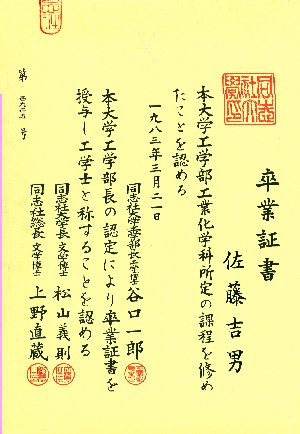 卒業証書
佐藤吉男
本大学工学部工業化学科所定の課程を修め
たことを認める
一九八三年三月二一日
同志社大学工学部長 工学博士 谷口一郎
本大学工学部長の認定により卒業証書を
授与し工学士と称することを認める
同志社大学長 文学博士 松山義則
同志社総長 文学博士 上野直蔵
第 号